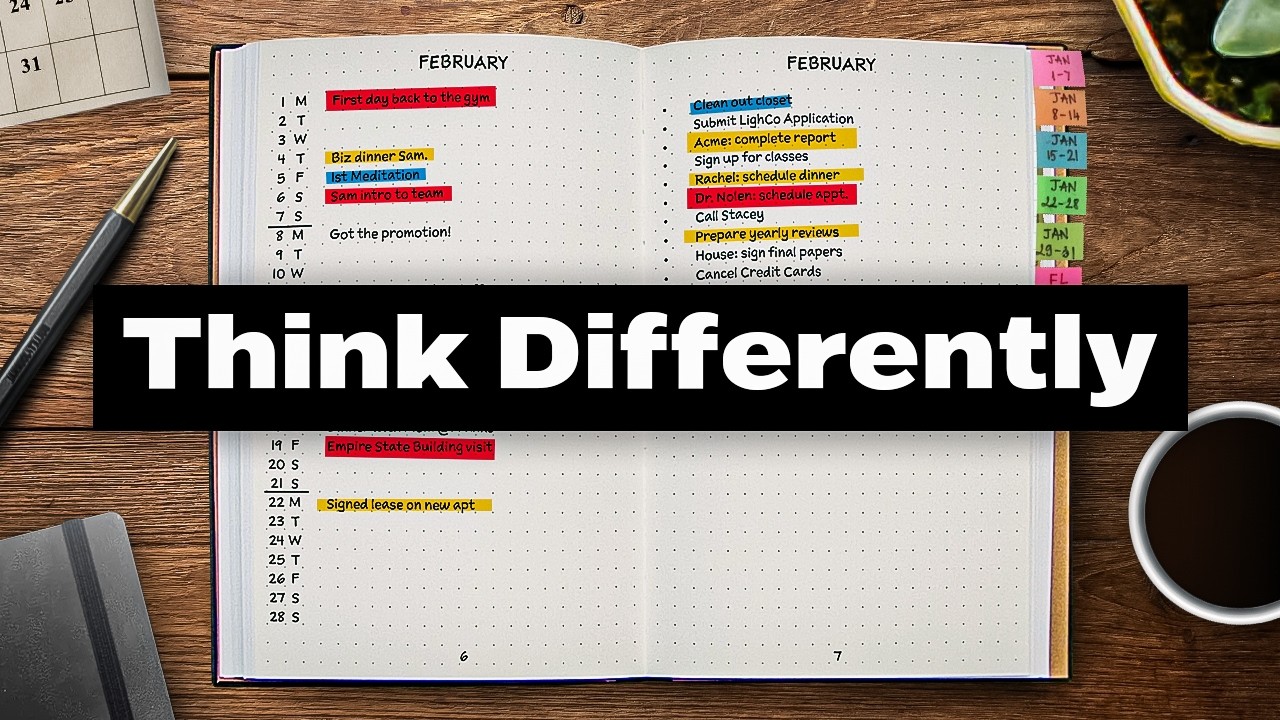 24
31
FEBRUARY
1 M First day back to the gym
2 T
3 W
4 T Biz dinner Sam.
5 F 1st Meditation
6 S Sam intro to team
7 S
8 M Got the promotion!
9 T
10 W
19 F Empire State Building visit
20 S
21 S
22 M Signed lease on new apt
23 T
24 W
25 T
26 F
27 S
28 S
6
FEBRUARY
Clean out closet
Submit LighCo Application
Acme: complete report
Sign up for classes
Rachel: schedule dinner
Dr. Nolen: schedule appt.
Call Stacey
Prepare yearly reviews
House: sign final papers
Cancel Credit Cards
7
JAN
1-7
JAN
8-14
JAN
15-21
JAN
22-28
JAN
29-31
Think Differently